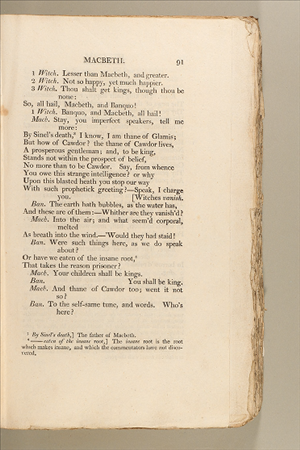 MACBETH. 91
1 Witch. Lesser than Macbeth, and greater.
2 Witch. Not so happy, yet much happier.
3 Witch. Thou shalt get kings, though thou be
none:
So, all hail, Macbeth, and Banquo!
1 Witch. Banquo, and Macbeth, all hail!
Macb. Stay, you imperfect speakers, tell me
more:
By Sinel's death,⁸ I know, I am thane of Glamis;
But how of Cawdor? the thane of Cawdor lives,
A prosperous gentleman; and, to be king,
Stands not within the prospect of belief,
No more than to be Cawdor. Say, from whence
You owe this strange intelligence? or why
Upon this blasted heath you stop our way
With such prophetick greeting?—Speak, I charge
you. [Witches vanish.
Ban. The earth hath bubbles, as the water has,
And these are of them:—Whither are they vanish'd?
Macb. Into the air; and what seem'd corporal,
melted
As breath into the wind.—'Would they had staid!
Ban. Were such things here, as we do speak
about?
Or have we eaten of the insane root,⁹
That takes the reason prisoner?
Macb. Your children shall be kings.
Ban. You shall be king.
Macb. And thane of Cawdor too; went it not
so?
Ban. To the self-same tune, and words. Who's
here?
By Sinel's death,] The father of Macbeth.
——eaten of the insane root,] The insane root is the root
which makes insane, and which the commentators have not disco-
vered.